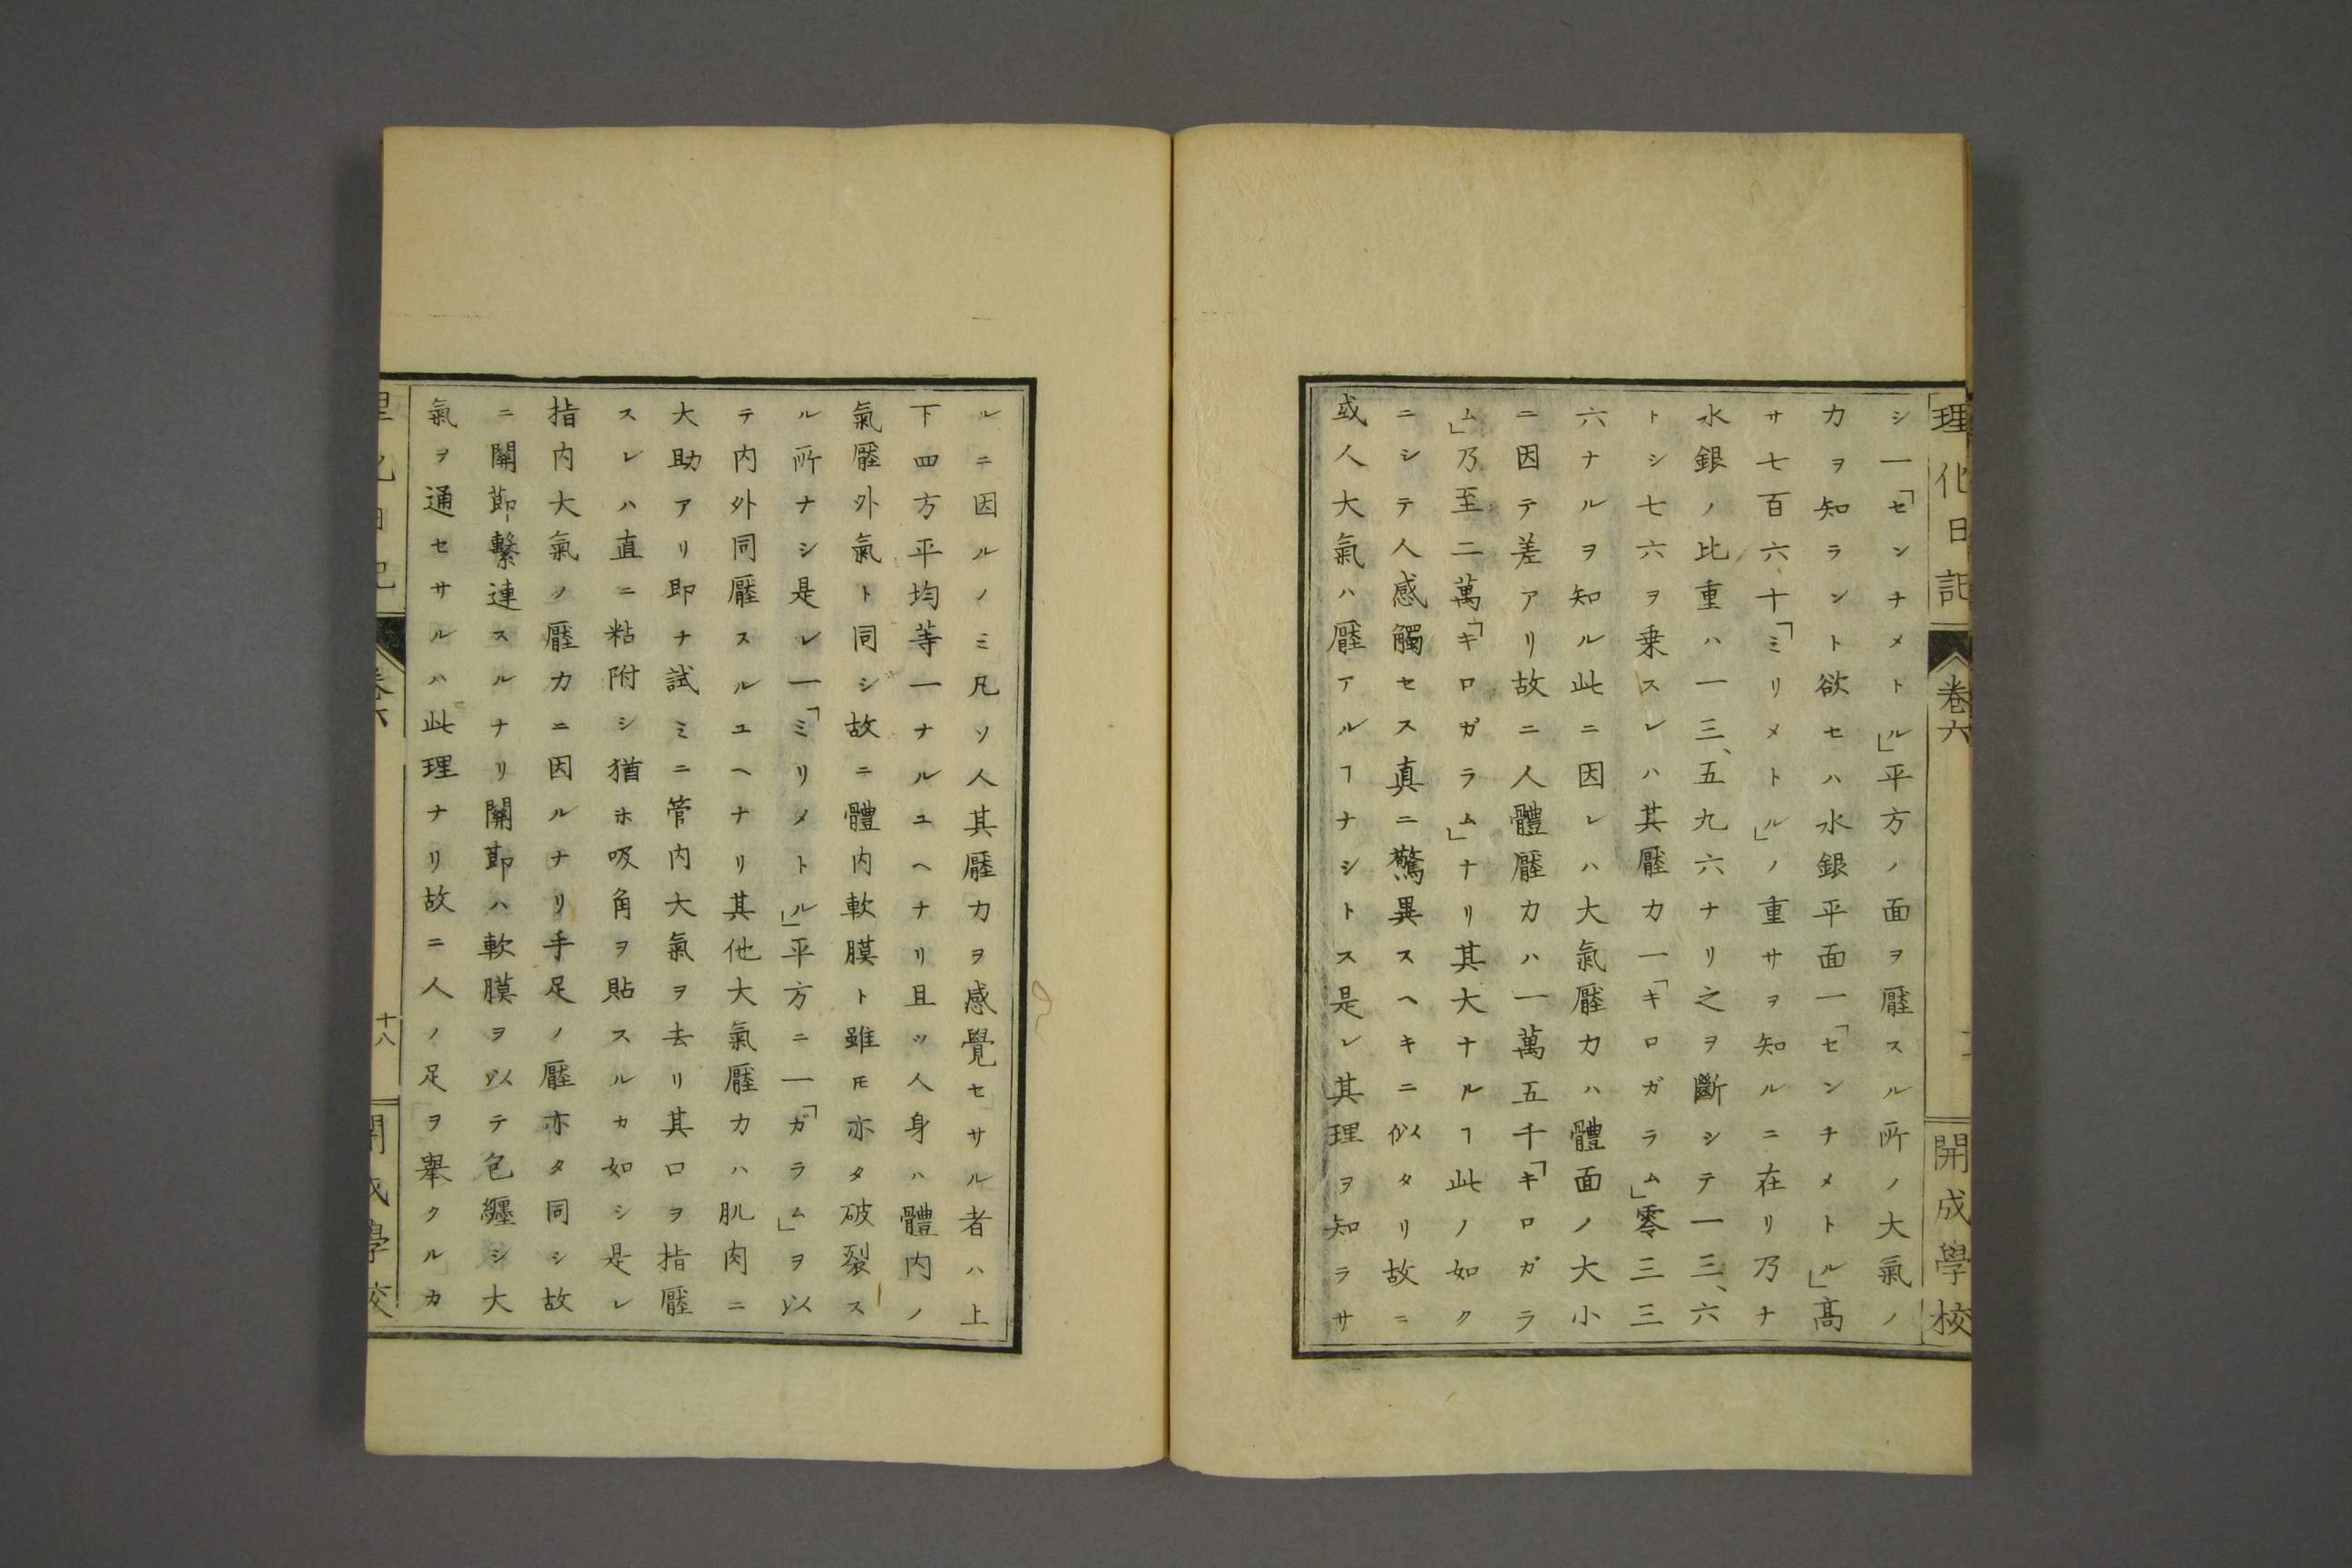 理化日記
卷六
開成學校
シ一「センチメトル」平方ノ面ヲ壓スル所ノ大氣ノ
力ヲ知ラント欲セハ水銀平面一「センチメトル」髙
サ七百六十「ミリメトル」ノ重サヲ知ルニ在リ乃ナ
水銀ノ比重ハ一三、五九六ナリ之ヲ斷シテ一三、六
トシ七六ヲ乗スレハ其壓力一「キロガラム」零三三
六ナルヲ知ル此ニ因レハ大氣壓力ハ體面ノ大小
ニ因テ差アリ故ニ人體壓力ハ一萬五千「キロガラ
ム」乃至二萬「キロガラム」ナリ其大ナルヿ此ノ如ク
ニシテ人感觸セス真ニ驚異スヘキニ似タリ故ニ
或人大氣ハ壓アルヿナシトス是レ其理ヲ知ラサ
ルニ因ルノミ凡ソ人其壓力ヲ感覺セサル者ハ上
下四方平均等一ナルユヘナリ且ツ人身ハ體内ノ
氣壓外氣ト同シ故ニ體内軟膜ト雖𪜈亦タ破裂ス
ル所ナシ是レ一「ミリメトル」平方ニ一「ガラム」ヲ以
テ内外同壓スルユヘナリ其他大氣壓力ハ肌肉ニ
大助アリ即ナ試ミニ管内大氣ヲ去リ其口ヲ指壓
スレハ直ニ粘附シ猶ホ吸角ヲ貼スルカ如シ是レ
指内大氣ノ壓力ニ因ルナリ手足ノ壓亦タ同シ故
ニ關節繫連スルナリ關節ハ軟膜ヲ以テ包纏シ大
氣ヲ通セサルハ此理ナリ故ニ人ノ足ヲ擧クルカ
理化日記
卷六
十八
開成學校